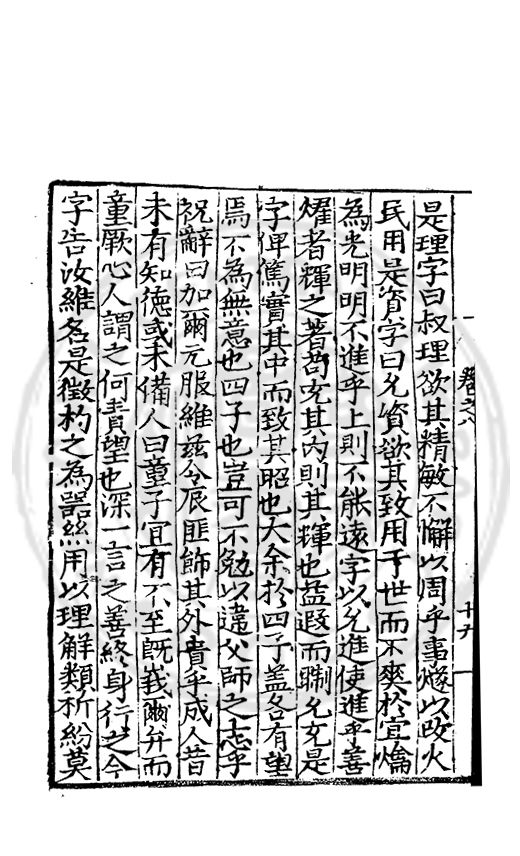 是理字曰叔理欲其精敏不懈以周乎事燧以改火
民用是資字曰允資欲其致用于世而不爽於宜爚
為光明明不進乎上則不能遠字以允進使進乎善
燿者輝之著苟充其內則其輝也益遐而期允充是
字俾篤實其中而致其昭也大余於四子盖各有望
焉不為無意也四子也豈可不勉以違父師之志乎
祝辭曰加爾元服維茲令辰匪飾其外責乎成人昔
未有知德或未備人曰童子宜有不至旣峩爾弁而
童厥心人謂之何責望也深一言之善終身行之今
字告汝維名是徵杓之為噐絲用以理解類析紛莫
卷之八
十九